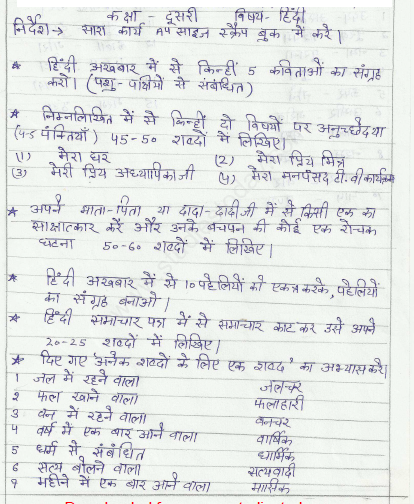 कक्षा - दूसरी विषय- हिंदी
निर्देश → सारा कार्य A4 साइज स्क्रैप बुक में करें।
★ हिंदी अखबार में से किन्हीं 5 कविताओं का संग्रह
करो। (पशु-पक्षियों से संबंधित)
★ निम्नलिखित में से किन्हीं दो विषयों पर अनुच्छेद
(4-5 पंक्तियाँ) 45-50 शब्दों में लिखिए।
(1) मेरा घर (2) मेरा प्रिय मित्र
(3) मेरी प्रिय अध्यापिका जी (4) मेरा मनपसंद टी.वी कार्यक्रम
★ अपने माता-पिता या दादा-दादीजी में से किसी एक का
साक्षात्कार करें और उनके बचपन की कोई एक रोचक
घटना 50-60 शब्दों में लिखिए।
★ हिंदी अखबार में से 10 पहेलियों को एकत्र करके, पहेलियों
का संग्रह बनाओ।
★ हिंदी समाचार पत्र में से समाचार काट कर उसे अपने
20-25 शब्दों में लिखिए।
★ दिए गए 'अनेक शब्दों के लिए एक शब्द' का अभ्यास करें।
1 जल में रहने वाला जलचर
2 फल खाने वाला फलाहारी
3 वन में रहने वाला वनचर
4 वर्ष में एक बार आने वाला वार्षिक
5 धर्म से संबंधित धार्मिक
6 सत्य बोलने वाला सत्यवादी
७ महीने में एक बार आने वाला मासिक